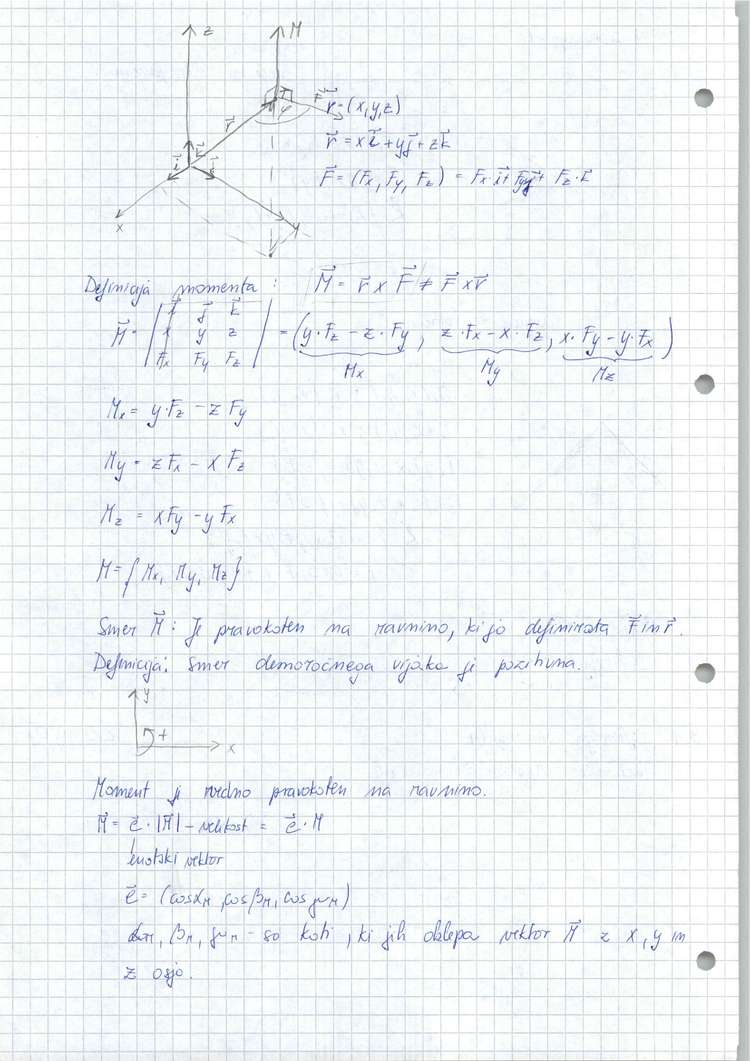 z M
r⃗ T φ F
i⃗ k⃗ j⃗
x y
r⃗ = (x,y,z)
r⃗ = x i⃗ + y j⃗ + z k⃗
F⃗ = (Fx, Fy, Fz) = Fx i⃗ + Fy j⃗ + Fz · k⃗
Definicija momenta : M⃗ = r⃗ x F⃗ ≠ F⃗ x r⃗
M⃗ = | i⃗ j⃗ k⃗
x y z
Fx Fy Fz | = (y·Fz - z·Fy, z·Fx - x·Fz, x·Fy - y·Fx)
Mx My Mz
Mx = y·Fz - z Fy
My = z Fx - x Fz
Mz = x Fy - y Fx
M = {Mx, My, Mz}
Smer M⃗: Je pravokoten na ravnino, ki jo definirata F⃗ in r⃗.
Definicija: Smer desnoročnega vijaka je pozitivna.
y
+
x
Moment je vedno pravokoten na ravnino.
M⃗ = e⃗ · |M⃗| - velikost = e⃗ · M
enotski vektor
e⃗ = (cosαM, cosβM, cosγM)
αM, βM, γM - so koti, ki jih oklepa vektor M⃗ z x, y in
z osjo.